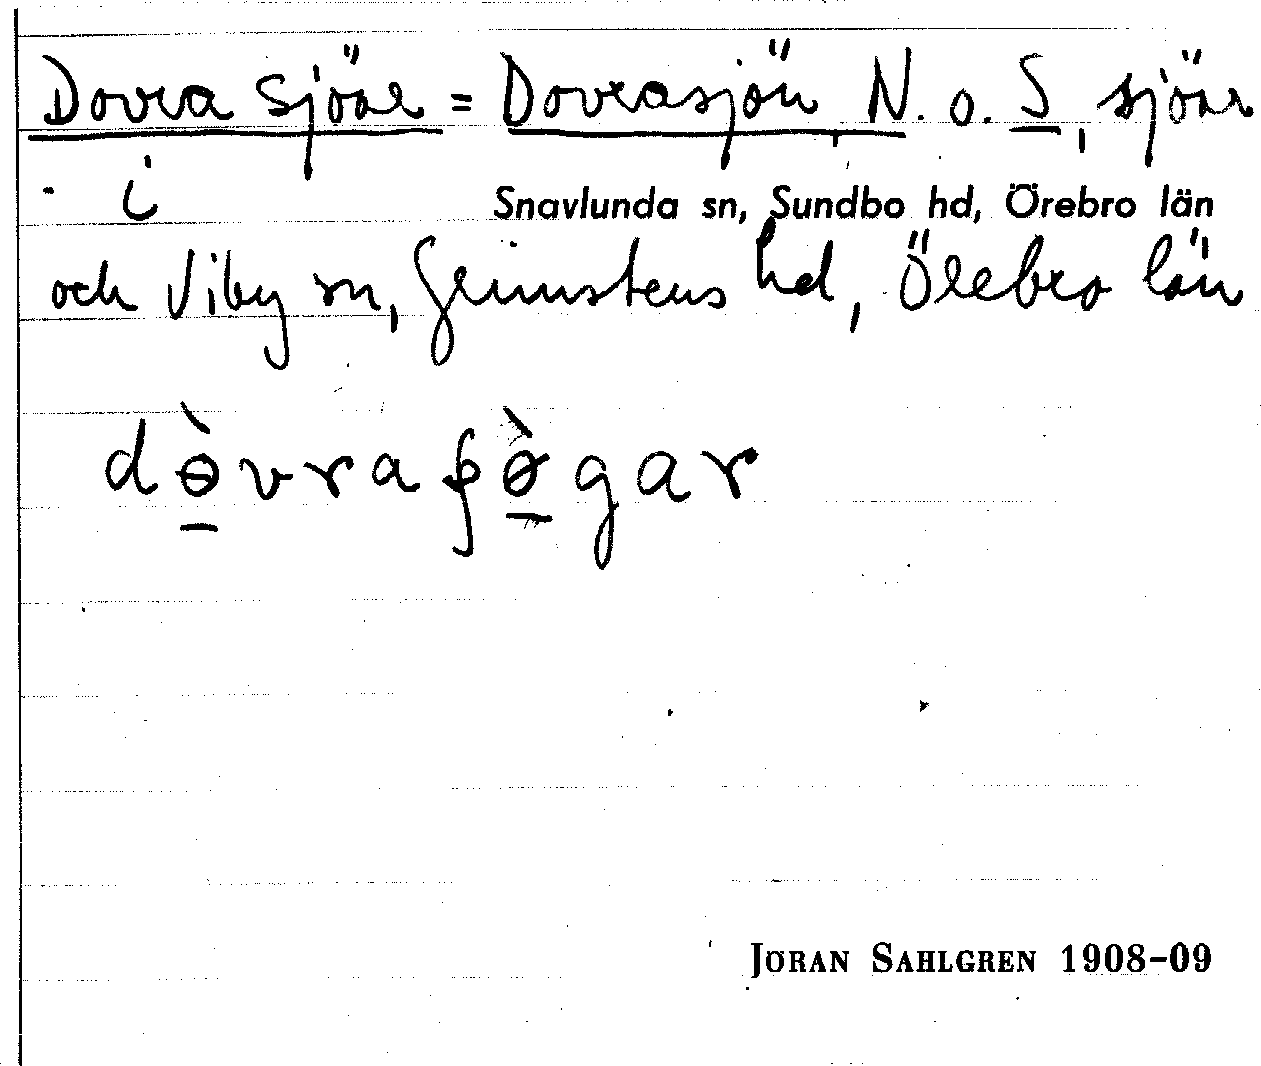 Dovra sjöar = Dovrasjön, N. o. S, sjöar
i Snavlunda sn, Sundbo hd, Örebro län
och Viby sn, Grimstens hd, Örebro län
dɵ̠̀vraʂø̠̀gar
JÖRAN SAHLGREN 1908–09